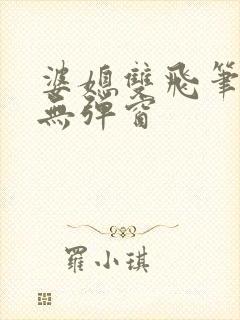 婆媳雙飛筆
無彈窗
羅小琪